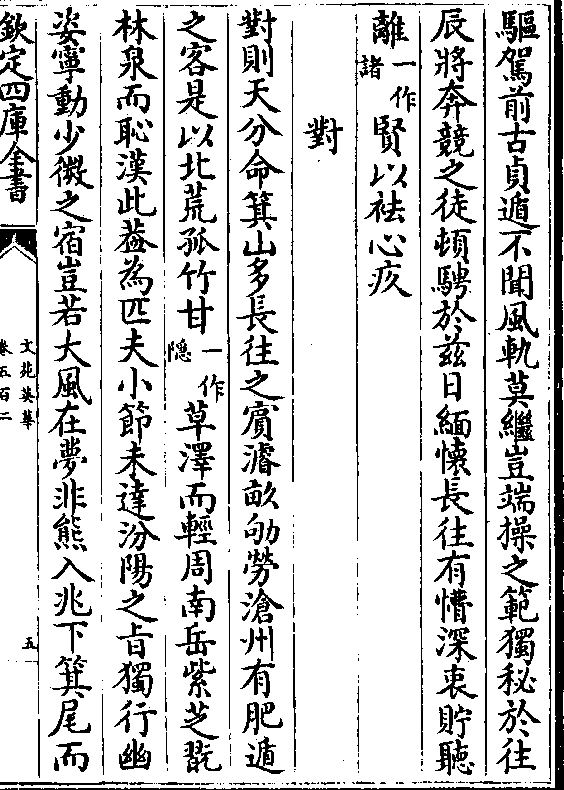 驅駕前古貞遁不聞風軌莫繼豈端操之範獨秘於往
辰將奔競之徒頓騁於兹日緬懷長往有懵深衷貯聽
離一作諸賢以祛心疚
對
對則天分命箕山多長往之賓濬畝劬勞滄州有肥遁
之客是以北荒孤竹甘一作隠草澤而輕周南岳紫芝翫
林泉而恥漢此葢為匹夫小節未達汾陽之㫖獨行幽
姿寧動少微之宿豈若大風在夢非熊入兆下箕尾而
欽定四庫全書
文苑英華
卷五百二
五